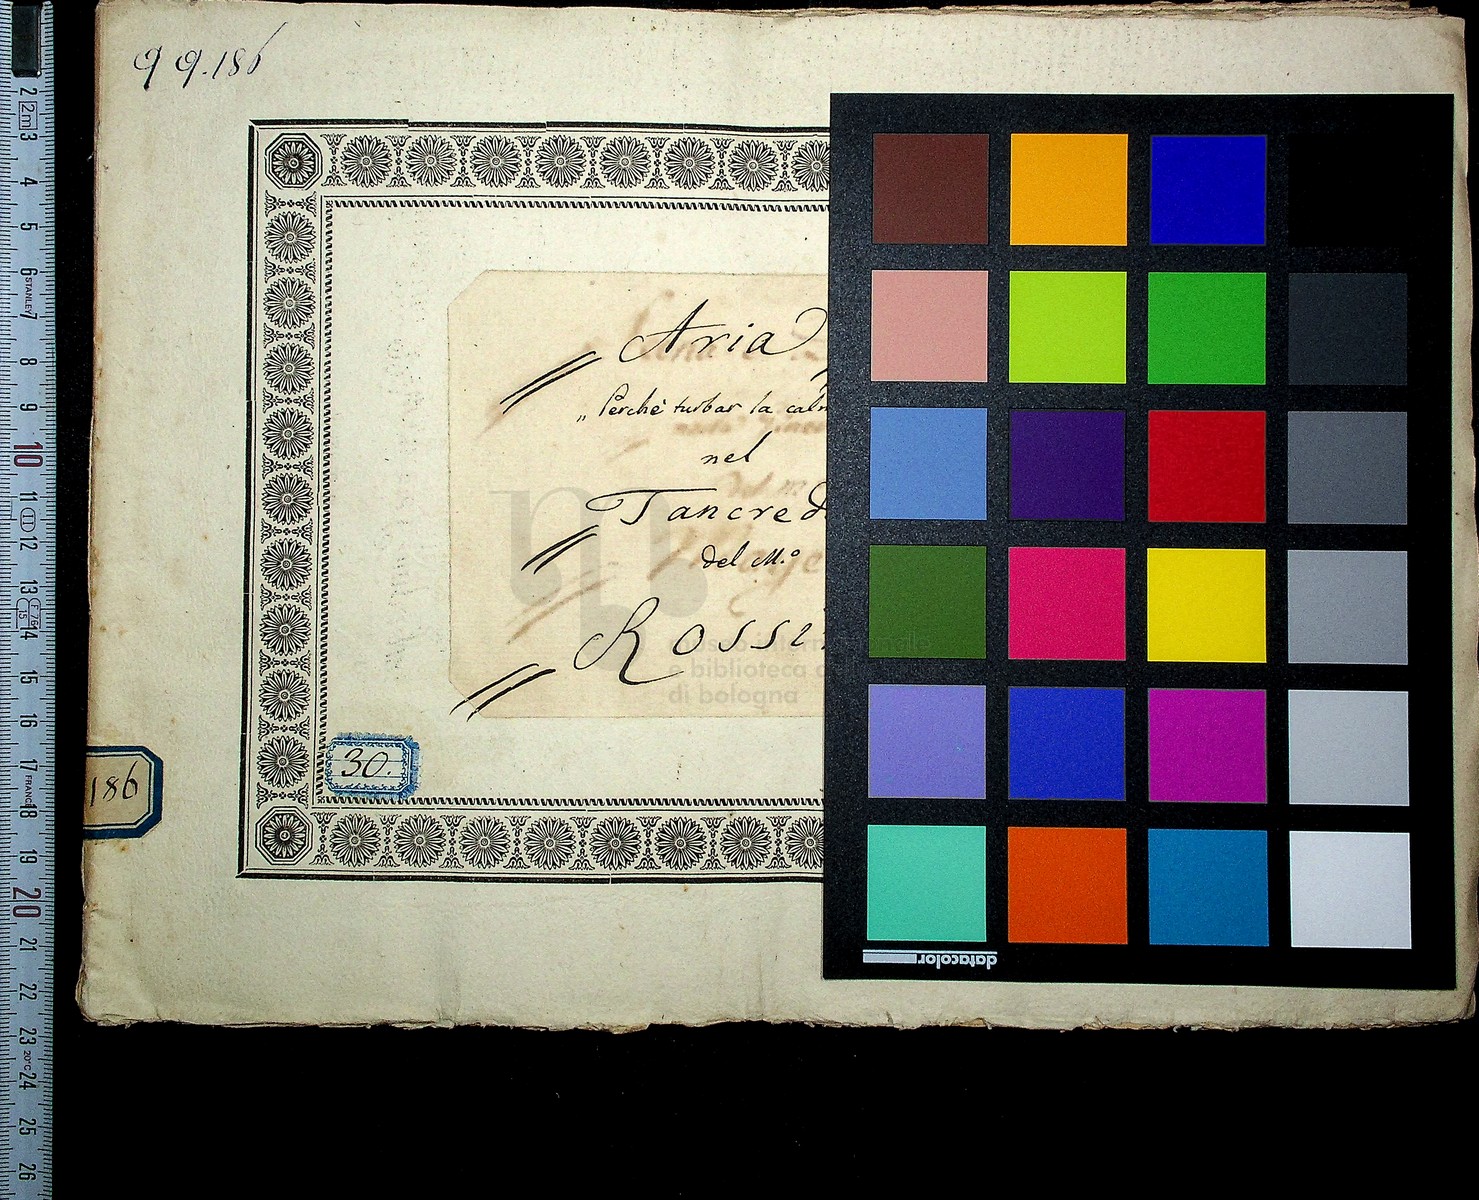 QQ.186
Aria
„Perchè turbar la calm
nel
Tancred
del M.º
Rossi
30.
186
e biblioteca
di bologna
datacolor
2m
STANLEY
FRANCE
20°C
2
3
4
5
6
7
8
9
10
11
12
13
14
15
16
17
18
19
20
21
22
23
24
25
26